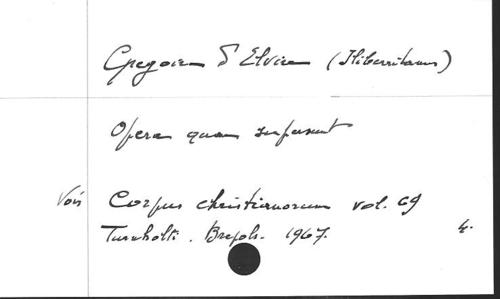 Gregoire d'Elvire (Iliberritanus)
Opera quae supersunt
Voir Corpus christianorum vol. 69
Turnholti. Brepols. 1967. 4.